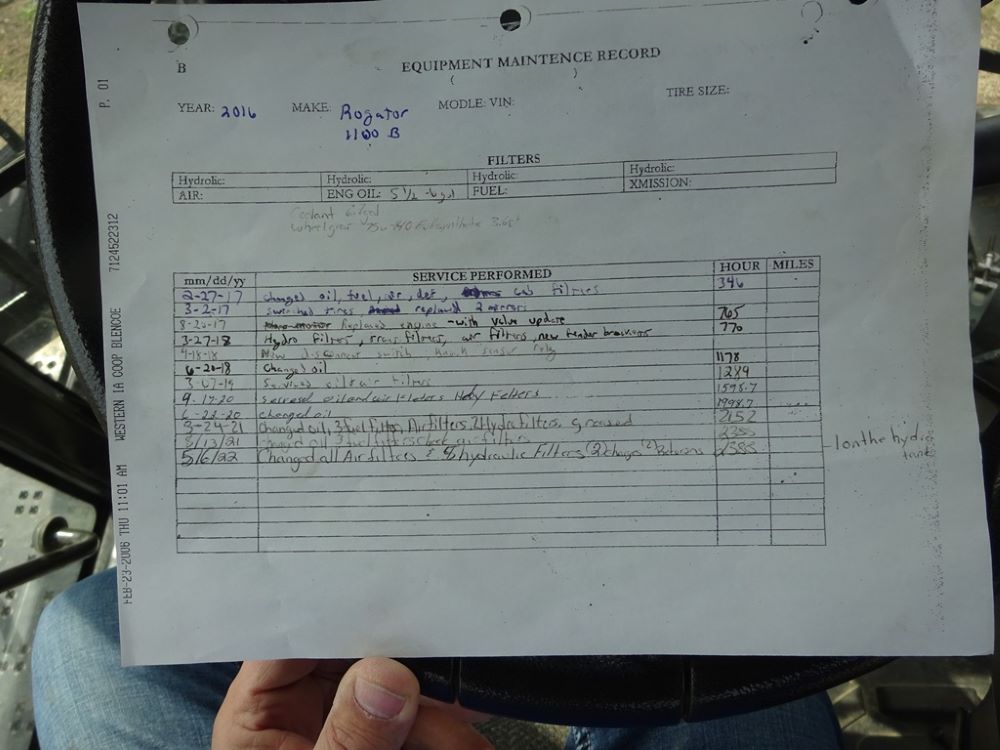 B
EQUIPMENT MAINTENCE RECORD
( )
YEAR: 2016 MAKE: Rogator MODLE: VIN: TIRE SIZE:
1100 B
FILTERS
Hydrolic: Hydrolic: Hydrolic: Hydrolic:
AIR: ENG OIL: 5 1/2 FUEL: XMISSION:
Coolant
wheel gear
mm/dd/yy SERVICE PERFORMED HOUR MILES
2-27-17 changed oil, fuel, air, def, cab filters 346
3-2-17 switched tires replaced 2 mirrors
8-20-17 Replaced engine - with valve update 705
3-27-18 Hydro filters, trans filters, air filters, new fender 770
4-18-18 New disconnect switch, knock sensor
6-20-18 Changed oil 1178
3-07-19 Serviced oil & air filters 1289
9-17-20 oil and air Hdy Felters 1598.7
6-23-20 changed oil 1998.7
3-24-21 Changed oil, 3 fuel filters, Air filters, 2 Hydro filters, greased 2152
8/13/21 changed oil 3 fuel filters check air filters
5/6/22 Changed all Air filters & hydraulic Filters (2) charge (2) Returns 2588
- 1 on the hydro
tank
P. 01
7124522312
WESTERN IA COOP BLENCOE
FEB-23-2006 THU 11:01 AM